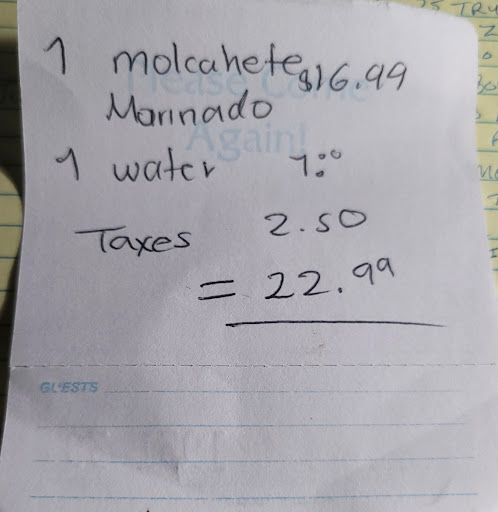 Please Come
Again!
1 molcahete $16.99
Marinado
1 water 1:00
Taxes 2.50
= 22.99
GUESTS